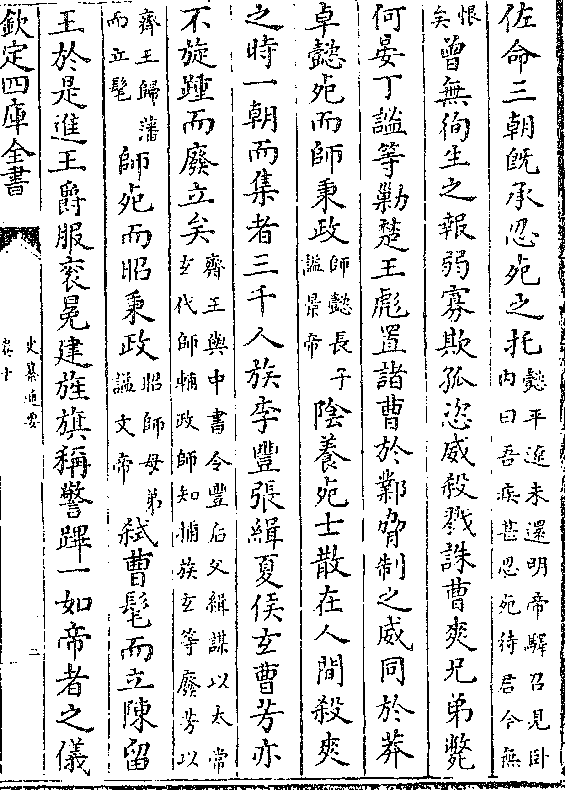 佐命三朝旣承忍死之托懿平遼未還明帝驛召見卧
內曰吾疾甚忍死待君今無
恨
矣曾無徇生之報弱寡欺孤恣威殺戮誅曹爽兄弟斃
何晏丁謐等勦楚王彪置諸曹於鄴脅制之威同於莽
卓懿死而師秉政師懿長子
謚景帝陰養死士散在人間殺爽
之時一朝而集者三千人族李豐張緝夏侯玄曹芳亦
不旋踵而廢立矣齊王與中書令豐后父緝謀以太常
玄代師輔政師知捕族玄等廢芳以
齊王歸藩
而立髦師死而昭秉政昭師母弟
謚文帝弑曹髦而立陳留
王於是進王爵服衮冕建旌旗稱警蹕一如帝者之儀
欽定四庫全書
史纂通要
卷十
二